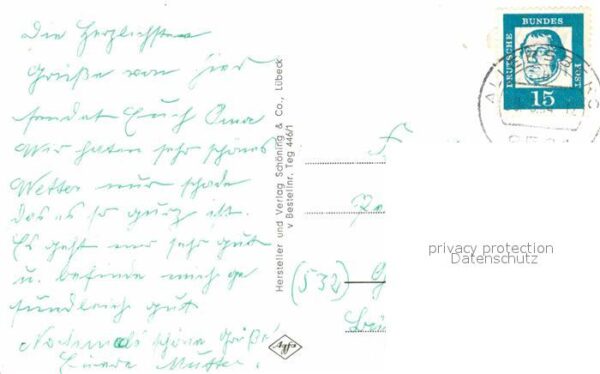 Die Herzlichsten
Grüße von hier
sendet Euch Oma
Wir haben sehr schönes
Wetter nur schade
das es so kurz ist.
Es geht mir sehr gut
u. befinde mich ge
sundleich gut
Nochmals schöne Grüße!
Euere Mutter.
Hersteller und Verlag Schöning & Co., Lübeck
v Bestellnr. Teg 446/1
Agfa
DEUTSCHE BUNDES POST
15
(532)
privacy protection
Datenschutz